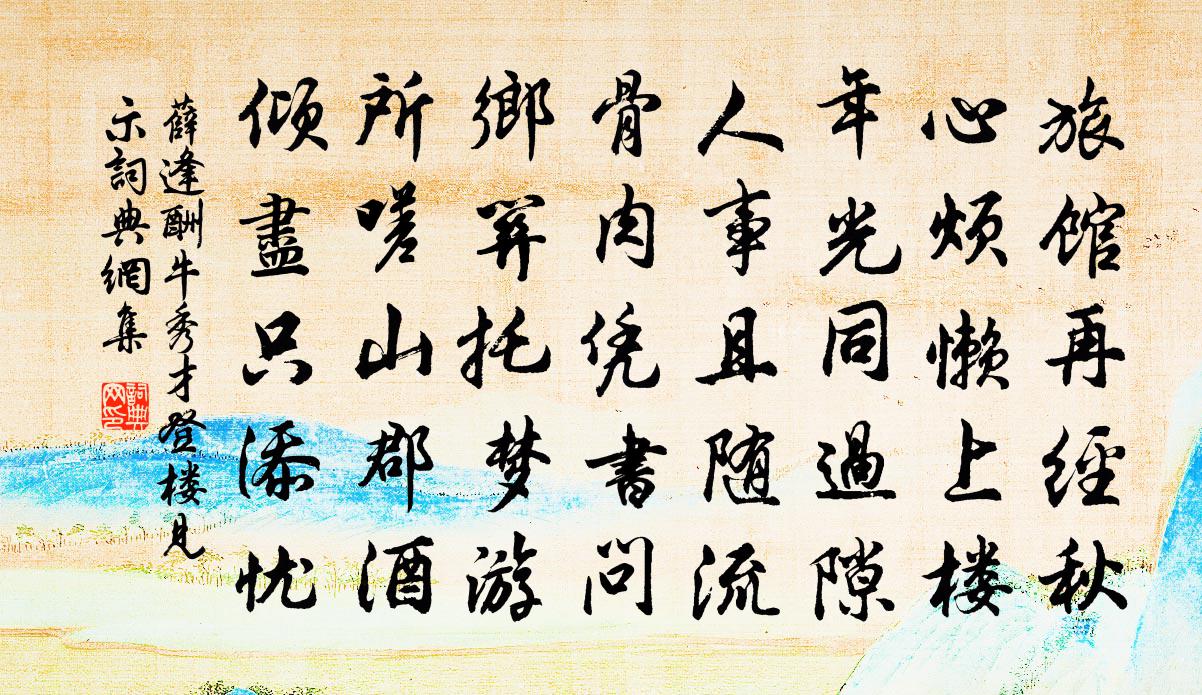 旅馆再經秋
心烦懒上楼
年光同過隙
人事且随流
骨肉凭書问
鄉关托梦游
所嗟山郡酒
倾盡只添忧
薛逢酬牛秀才登楼見
示詞典網集
詞典网印